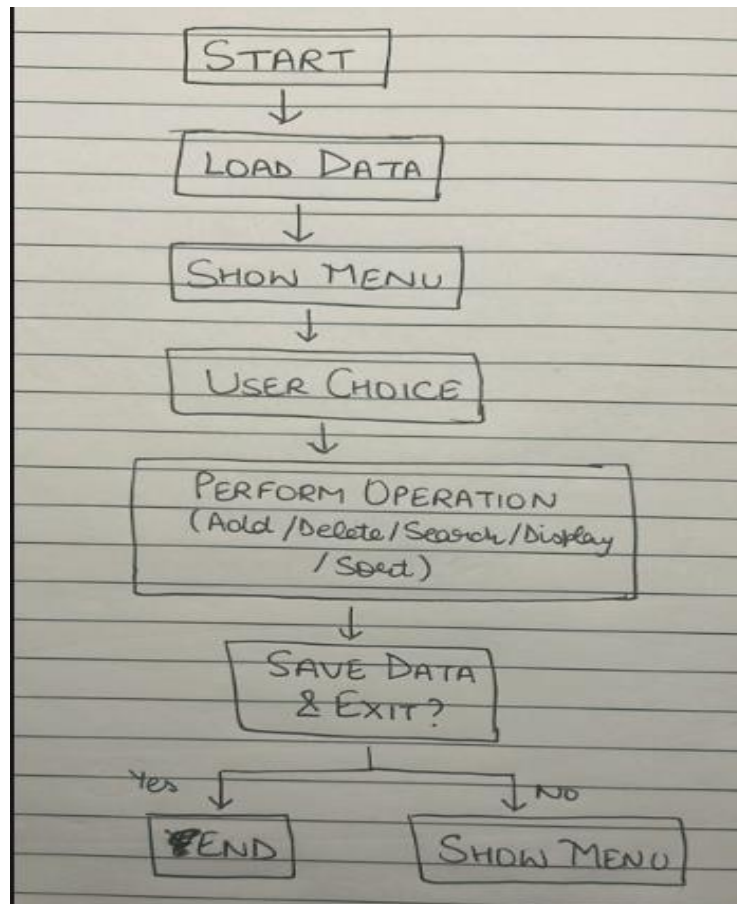 START
LOAD DATA
SHOW MENU
USER CHOICE
PERFORM OPERATION
(Add/Delete/Search/Display
/Sort)
SAVE DATA
& EXIT?
Yes
No
END
SHOW MENU